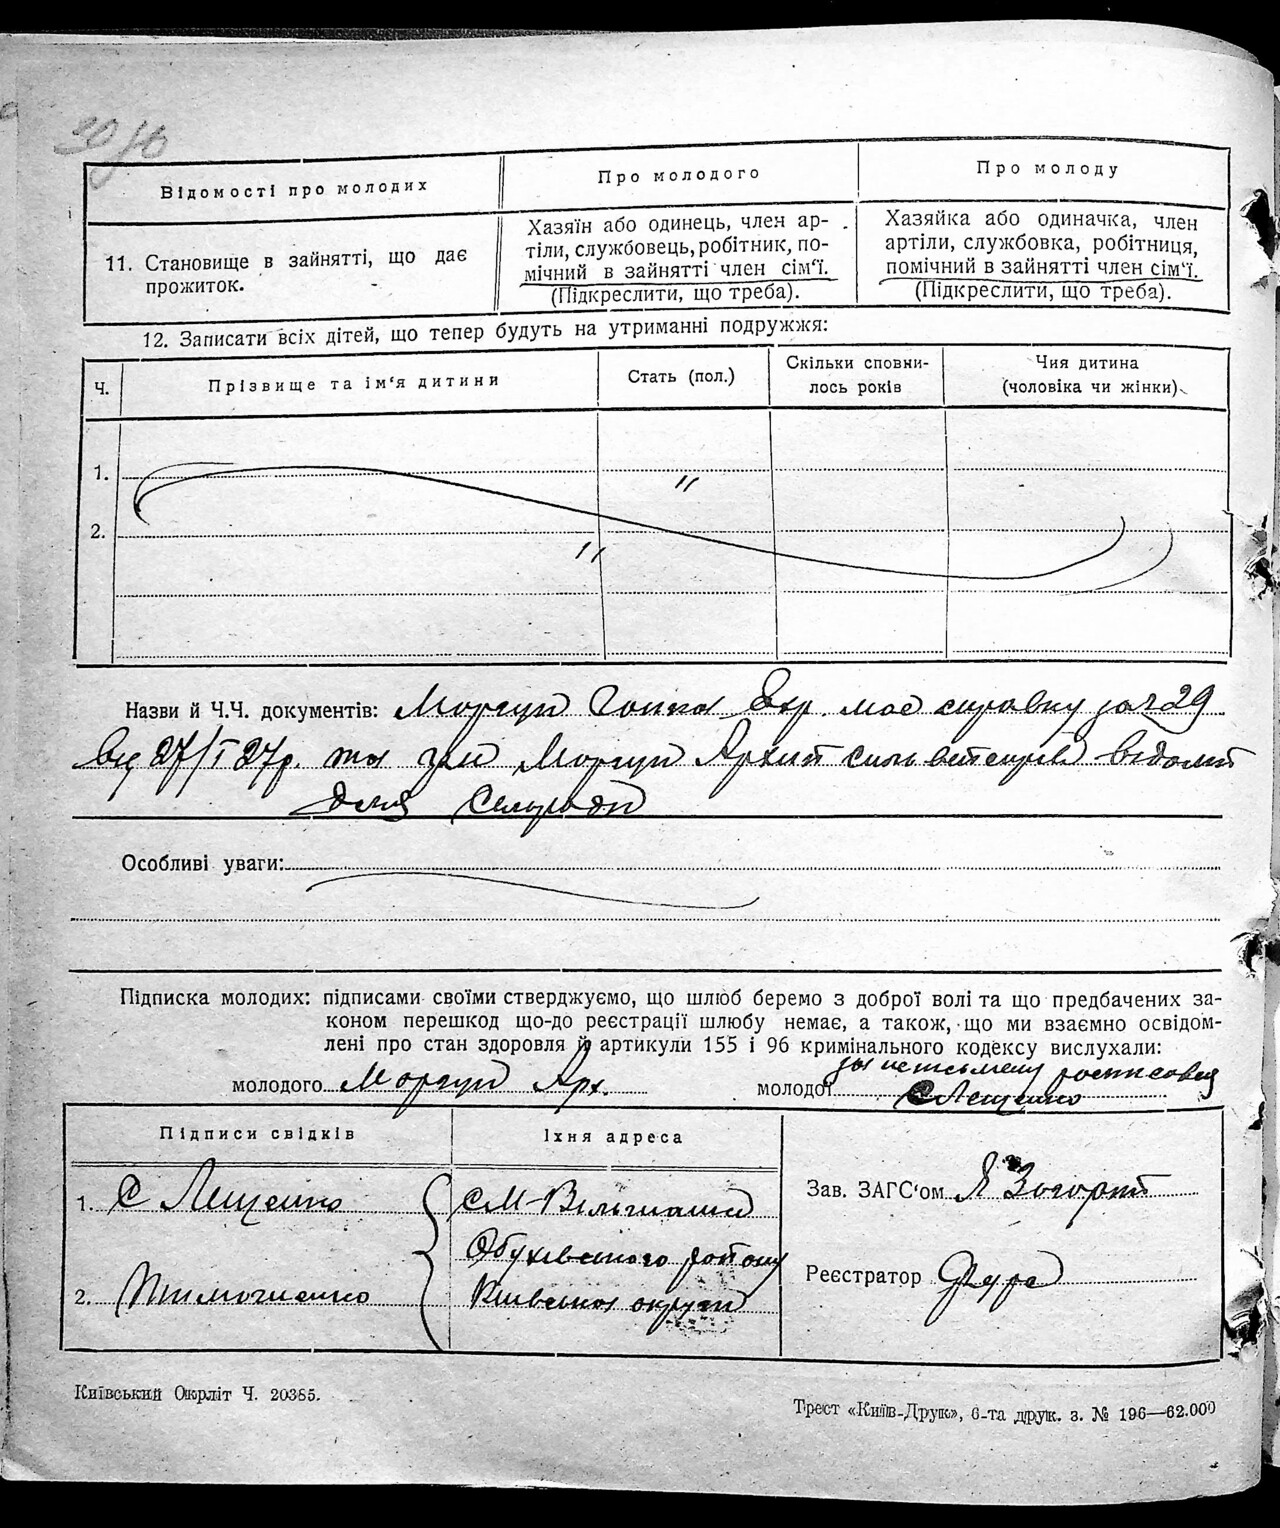 Відомості про молодих
Про молодого
Про молоду
11. Становище в зайнятті, що дає
прожиток.
Хазяїн або одинець, член ар-
тіли, службовець, робітник, по-
мічний в зайнятті член сім'ї.
(Підкреслити, що треба).
Хазяйка або одиначка, член
артіли, службовка, робітниця,
помічний в зайнятті член сім'ї.
(Підкреслити, що треба).
12. Записати всіх дітей, що тепер будуть на утриманні подружжя:
Ч.
Прізвище та ім'я дитини
Стать (пол.)
Скільки сповни-
лось років
Чия дитина
(чоловіка чи жінки)
1.
"
2.
"
Назви й Ч.Ч. документів: Моргун має справку за ч 29
від 27/I 27р. та Моргун Архип
Сельради
Особливі уваги:
Підписка молодих: підписами своїми стверджуємо, що шлюб беремо з доброї волі та що предбачених за-
коном перешкод що-до реєстрації шлюбу немає, а також, що ми взаємно освідом-
лені про стан здоровля й артикули 155 і 96 кримінального кодексу вислухали:
молодого Моргун Арх.
молодої
СЛещенко
Підписи свідків
Їхня адреса
1. С Лещенко
СМ-Вільшанка
Обухівського району
2. Тимошенко
Київської округи
Зав. ЗАГС'ом
Реєстратор
Київський Окрліт Ч. 20385.
Трест «Київ-Друк», 6-та друк. з. № 196—62.000